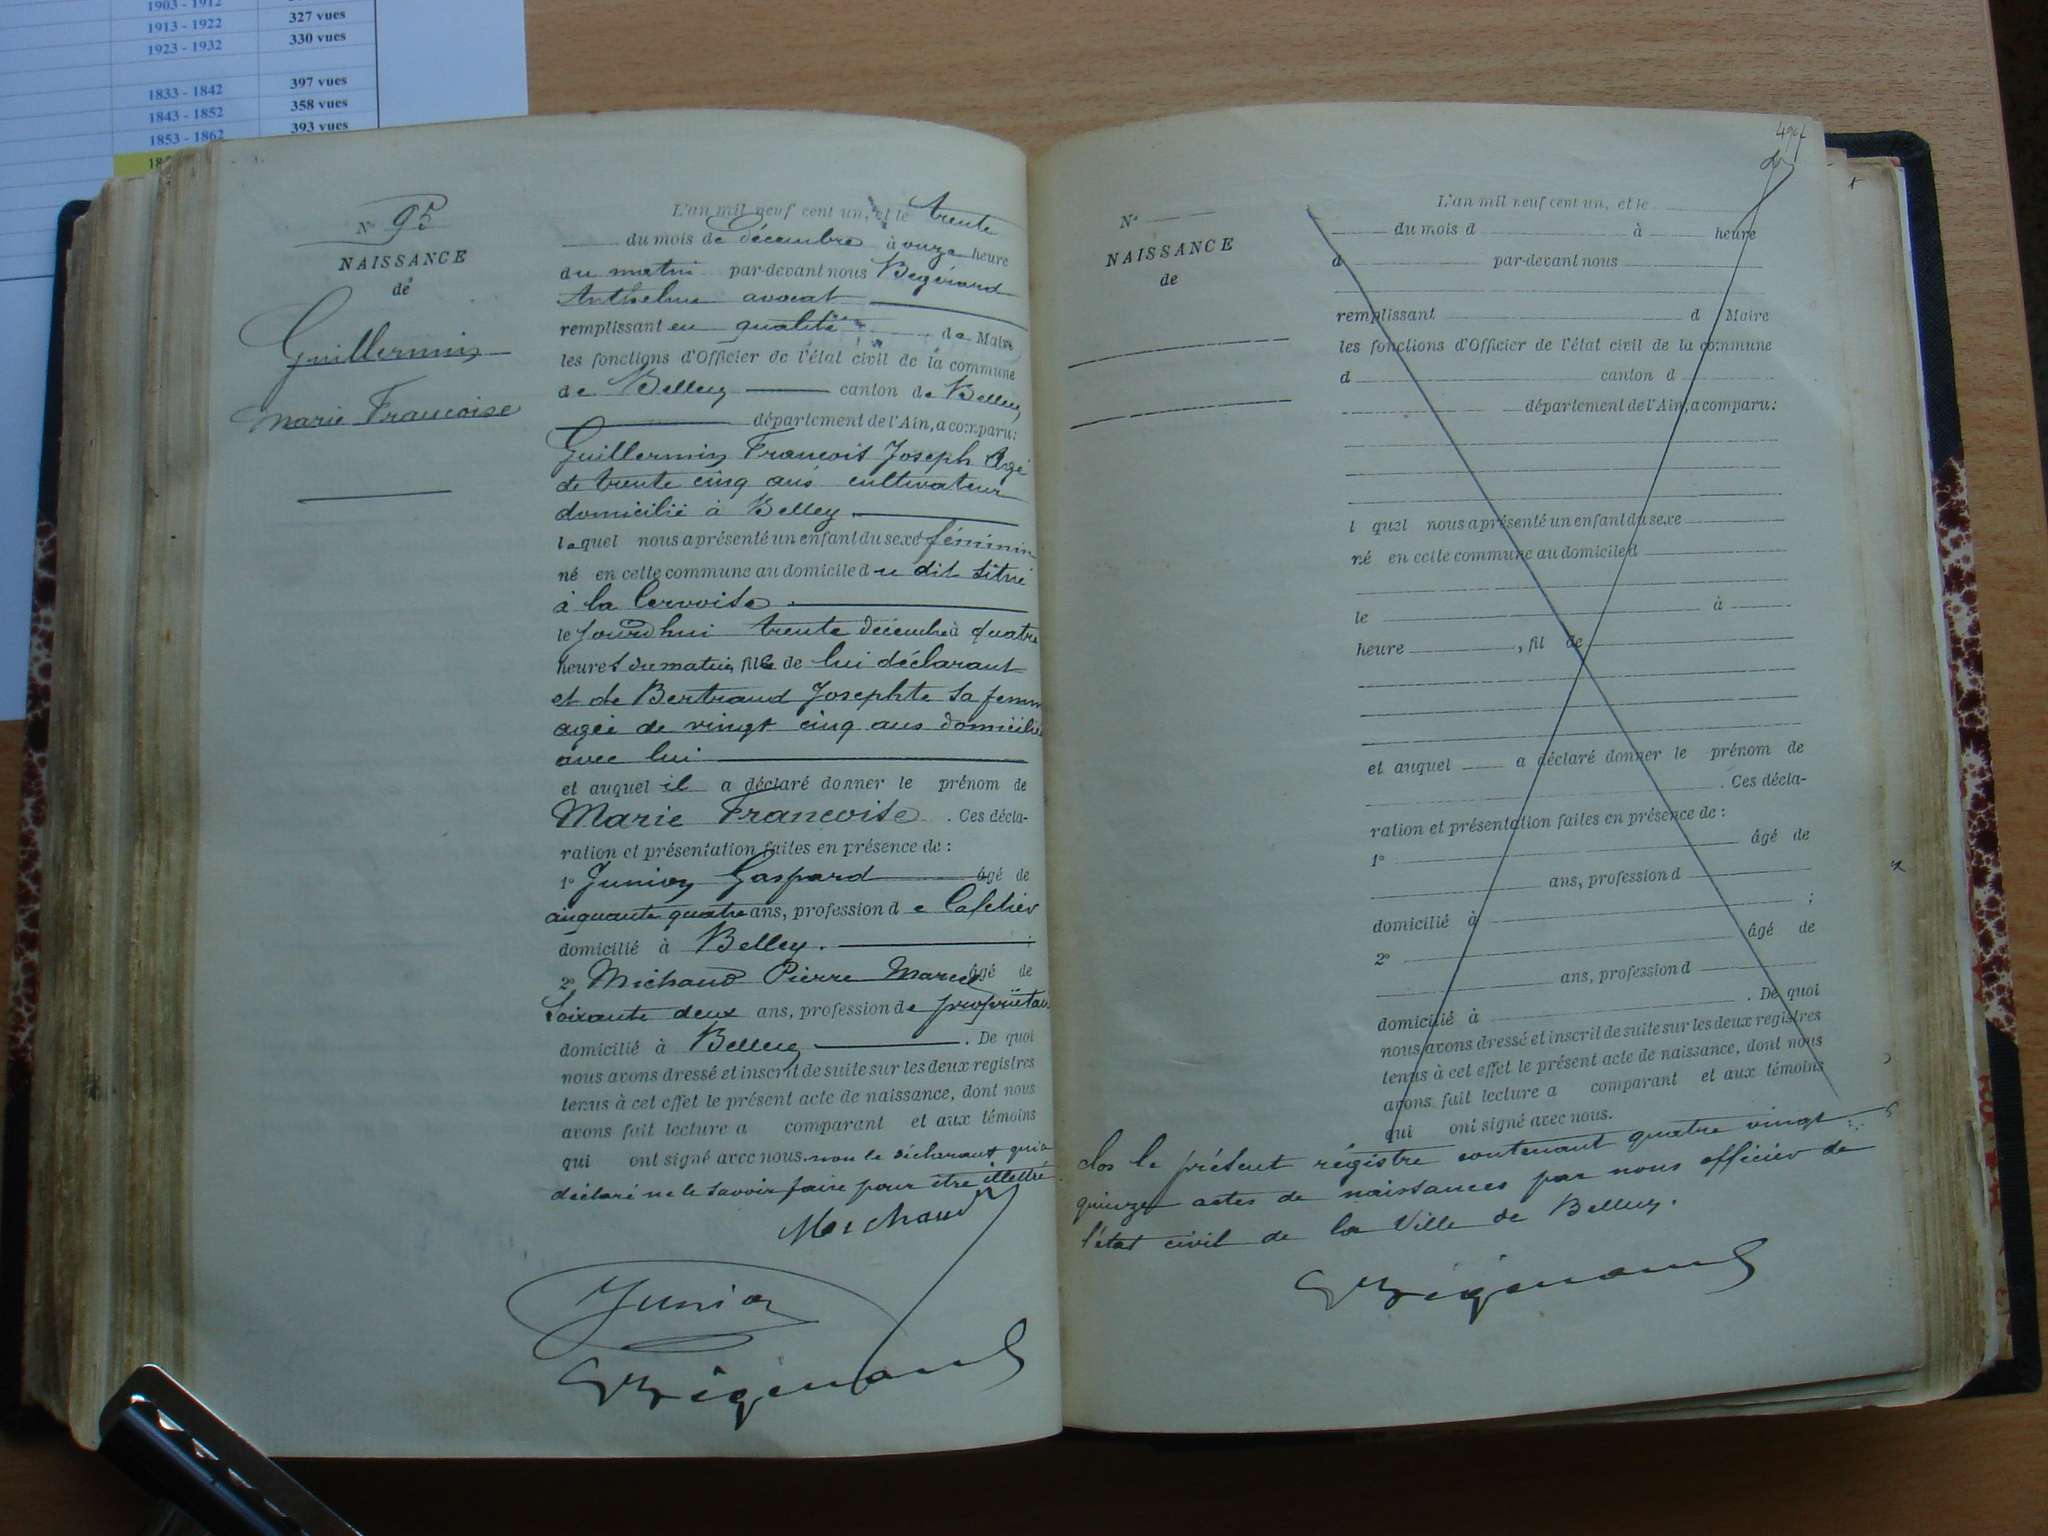 1903 - 1912
1913 - 1922 327 vues
1923 - 1932 330 vues
1833 - 1842 397 vues
1843 - 1852 358 vues
1853 - 1862 393 vues
N° 95
NAISSANCE
de
Guillermin
Marie Francoise
L'an mil neuf cent un, et le trente
du mois de décembre à onze heure
du matin par-devant nous
Anthelme avocat
remplissant en qualité de Maire
les fonctions d'Officier de l'état civil de la commune
de Belley canton de Belley
département de l'Ain, a comparu:
Guillermin Francois Joseph Agé
de trente cinq ans cultivateur
domicilié à Belley
lequel nous a présenté un enfant du sexe féminin
né en cette commune au domicile du dit situé
à la
le jourdhui trente décembre à quatre
heures du matin, fille de lui déclarant
et de Bertrand Josephte sa femme
agée de vingt cinq ans domiciliée
avec lui
et auquel il a déclaré donner le prénom de
Marie Francoise . Ces décla-
ration et présentation faites en présence de :
1° Junion Gaspard âgé de
cinquante quatre ans, profession de Cafetier
domicilié à Belley. ;
2° Michaud Pierre Marcel âgé de
Soixante deux ans, profession de propriétaire
domicilié à Belley . De quoi
nous avons dressé et inscrit de suite sur les deux registres
tenus à cet effet le présent acte de naissance, dont nous
avons fait lecture a comparant et aux témoins
qui ont signé avec nous. non le déclarant qui a
déclaré ne le savoir faire pour être illettré
Michaud
Junion
N°
NAISSANCE
de
L'an mil neuf cent un, et le
du mois d à heure
d par-devant nous
remplissant d Maire
les fonctions d'Officier de l'état civil de la commune
d canton d
département de l'Ain, a comparu:
l quel nous a présenté un enfant du sexe
né en cette commune au domicile d
le à
heure , fil de
et auquel a déclaré donner le prénom de
. Ces décla-
ration et présentation faites en présence de :
1° âgé de
ans, profession d
domicilié à ;
2° âgé de
ans, profession d
domicilié à . De quoi
nous avons dressé et inscrit de suite sur les deux registres
tenus à cet effet le présent acte de naissance, dont nous
avons fait lecture a comparant et aux témoins
qui ont signé avec nous.
clos le présent régistre contenant quatre vingt
quinze actes de naissances par nous officier de
l'état civil de la Ville de Belley.